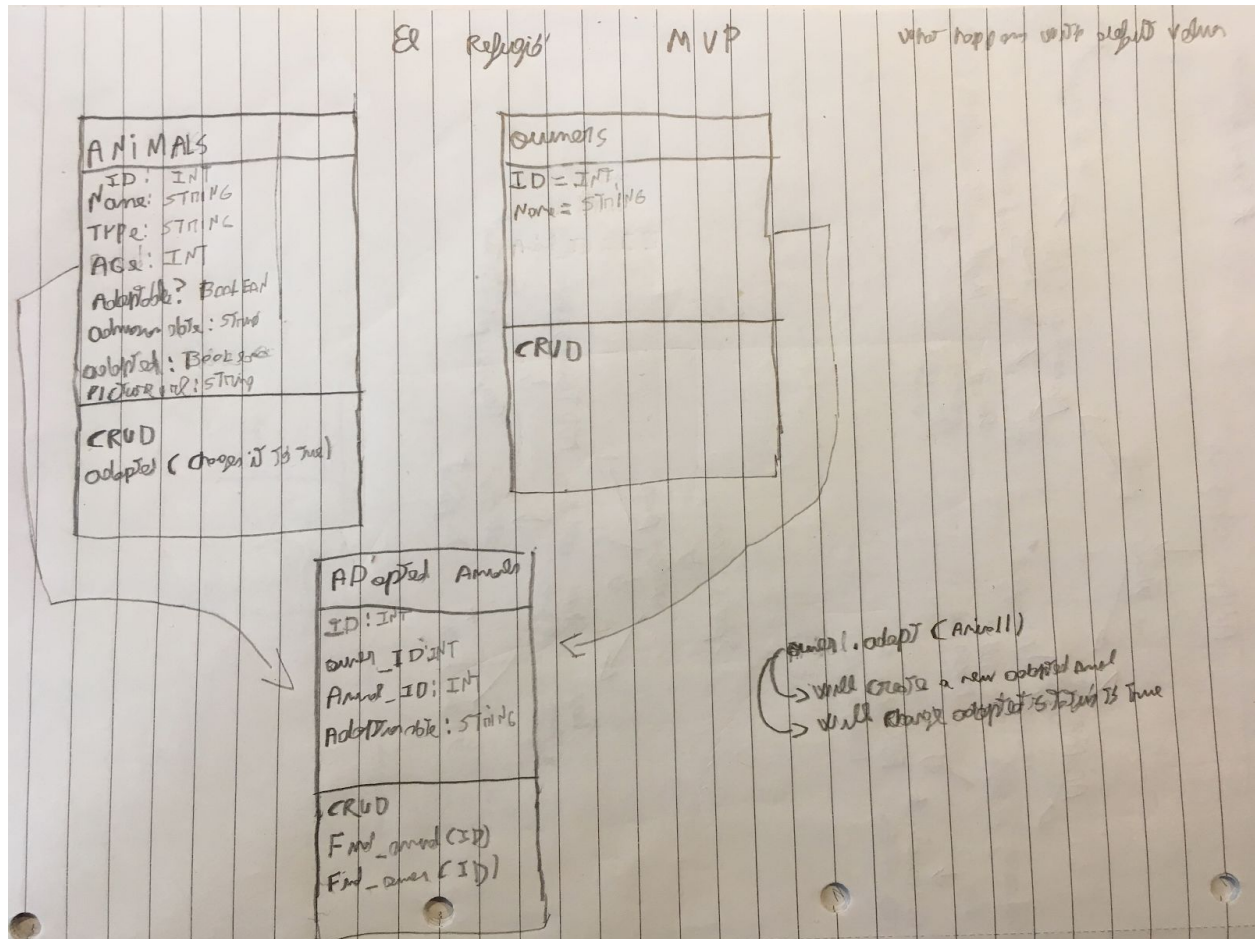 El Refugio MVP
what happens with default values
ANiMALS
ID: INT
Name: STRING
Type: STRING
AGe: INT
Adoptable? BOOLEAN
admission date: String
adopted: Boolean
Picture url: String
CRUD
adopted (changes it to true)
owners
ID = INT
Name = STRING
CRUD
ADopted Animals
ID: INT
owner_ID: INT
Animal_ID: INT
Adoption date: STRING
CRUD
Find_animal (ID)
Find_owner (ID)
owner1.adopt (Animal1)
will create a new adopted animal
will change adopted status to true